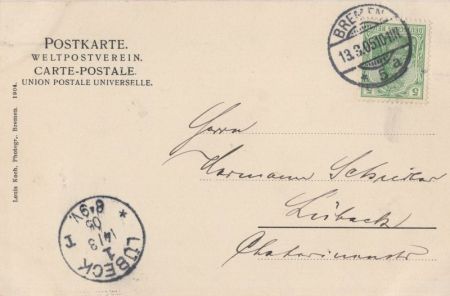 POSTKARTE.
WELTPOSTVEREIN.
CARTE-POSTALE.
UNION POSTALE UNIVERSELLE.
BREMEN
13.3.05.10-11N.
* 5 a.
5 5
Louis Koch, Photogr., Bremen. 1904.
Herrn
Hermann
Lübeck
* LÜBECK 1 *
14/3
05
8-9V.